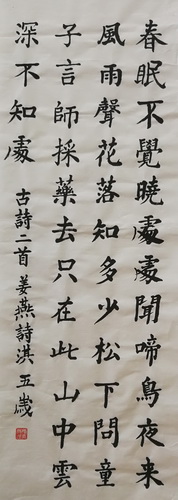 春眠不覺曉處處聞啼鳥夜来
風雨聲花落知多少松下問童
子言師採藥去只在此山中雲
深不知處
古詩二首姜燕詩淇五歲